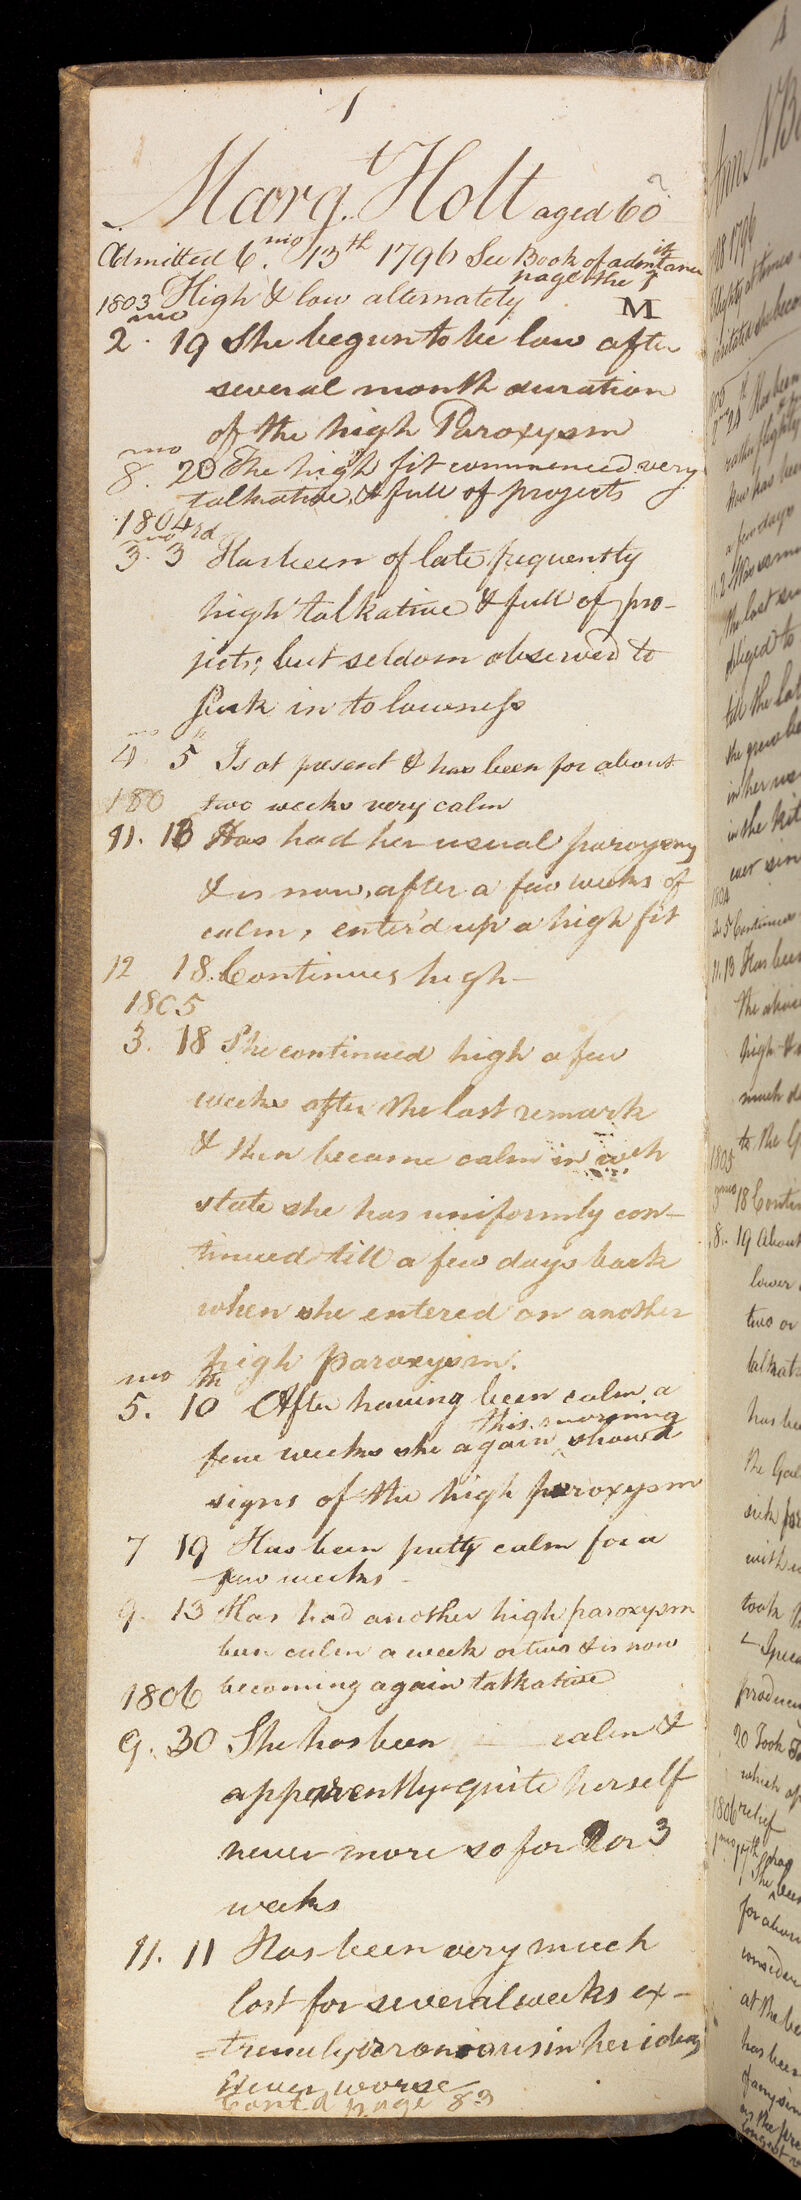 1
Marg.t Holt aged 60
Admitted 6.mo 13th 1796 See Book of admittance
page the 1
1803 High & low alternately M
2.mo 19 She begun to be low after
several month duration
of the high Paroxysm
8.mo 20 The high fit commenced very
talkative & full of projects
1804
3.mo 3rd Has been of late frequently
high talkative & full of pro-
jects; but seldom observed to
sink in to lowness
4.mo 5 Is at present & has been for about
180 two weeks very calm
11. 13 Has had her usual paroxysms
& is now, after a few weeks of
calm, enter'd up a high fit
12 18. Continues high-
1805
3. 18 She continued high a few
weeks after the last remark
& then became calm in wch
state she has uniformly con-
tinued till a few days back
when she entered on another
high paroxysm.
5.mo 10th After having been calm a
few weeks she again this morning show'd
signs of the high paroxysm
7 19 Has been pretty calm for a
few weeks-
9. 13 Has had another high paroxysm
been calm a week or two & is now
1806 becoming again talkative
9. 30 She has been calm &
apparently quite herself
never more so for 2 or 3
weeks
11. 11 Has been very much
lost for several weeks ex-
=tremely erronious in her ideas
Never worse
Cont'd page 83